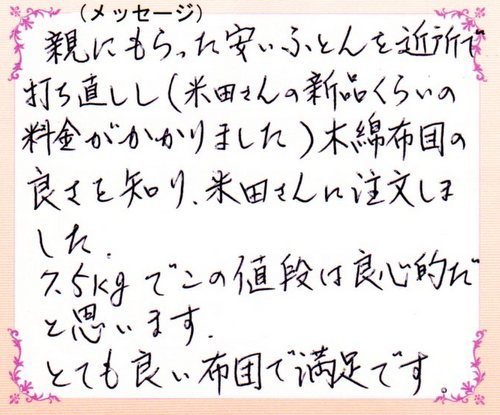 (メッセージ)
親にもらった安いふとんを近所で
打ち直しし(米田さんの新品くらいの
料金がかかりました)木綿布団の
良さを知り、米田さんに注文しま
した。
7.5kgでこの値段は良心的だ
と思います。
とても良い布団で満足です。